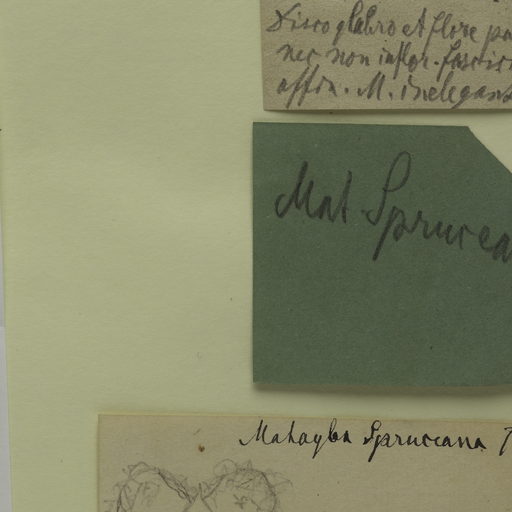 Disco glabro et flore pa
nec non inflor. fascic
affin. M. inelegans
Mat Sprucea
Matayba Spruceana